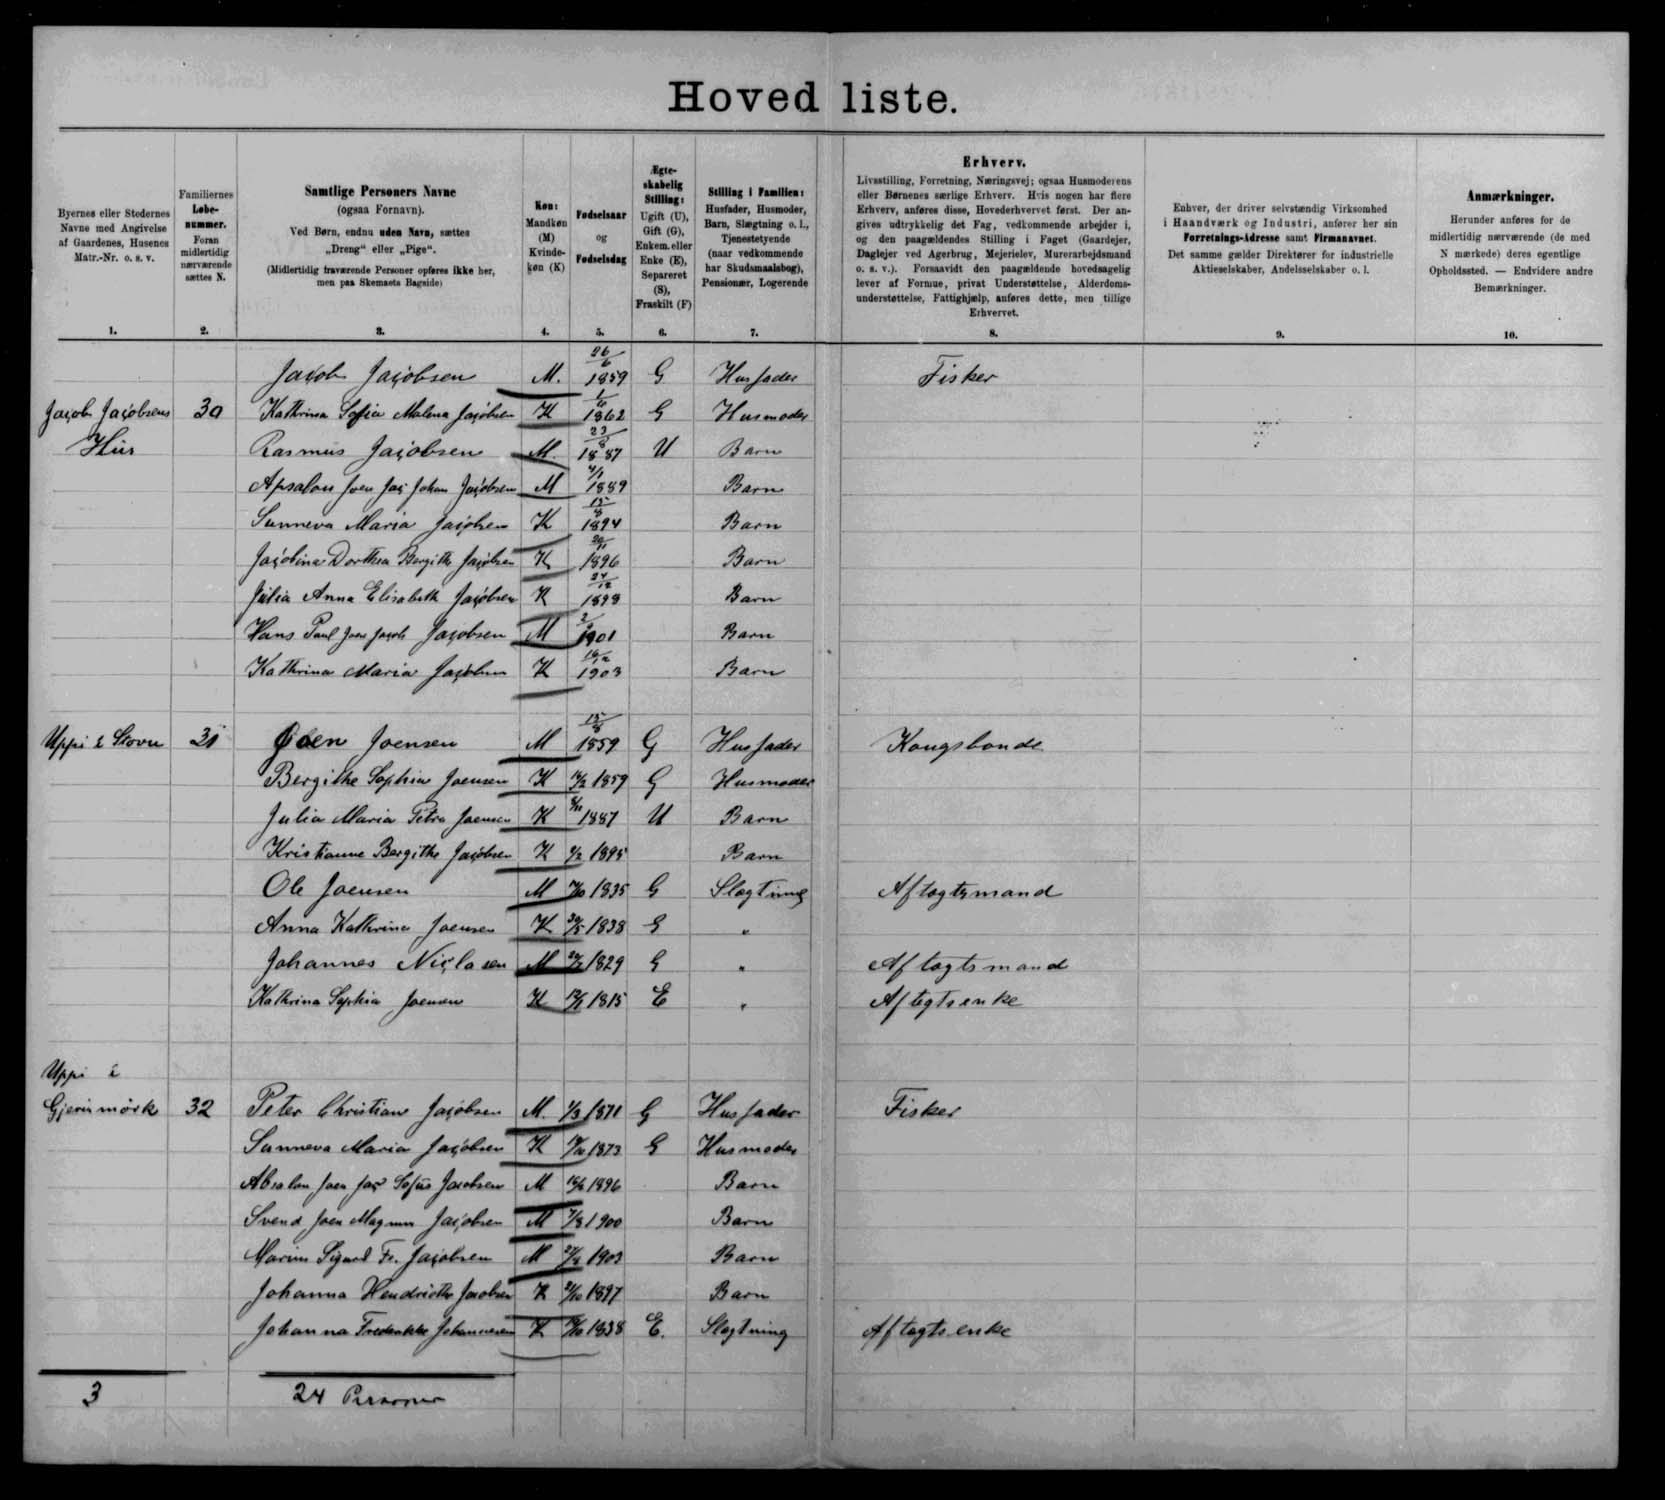 Hoved liste.
Byernes eller Stedernes Navne med Angivelse af Gaardenes, Husenes Matr.-Nr. o. s. v.
Familiernes Løbenummer. Foran midlertidig nærværende sættes N.
Samtlige Personers Navne
(ogsaa Fornavn).
Ved Børn, endnu uden Navn, sættes
„Dreng“ eller „Pige“.
(Midlertidig fraværende Personer opføres ikke her,
men paa Skemaets Bagside)
Køn:
Mandkøn
(M)
Kvinde-
køn (K)
Fødselsaar
og
Fødselsdag
Ægte-
skabelig
Stilling:
Ugift (U),
Gift (G),
Enkem. eller
Enke (E),
Separeret
(S),
Fraskilt (F)
Stilling i Familien:
Husfader, Husmoder,
Barn, Slægtning o. l.,
Tjenestetyende
(naar vedkommende
har Skudsmaalsbog),
Pensionær, Logerende
Erhverv.
Livsstilling, Forretning, Næringsvej; ogsaa Husmoderens
eller Børnenes særlige Erhverv. Hvis nogen har flere
Erhverv, anføres disse, Hovederhvervet først. Der an-
gives udtrykkelig det Fag, vedkommende arbejder i,
og den paagældendes Stilling i Faget (Gaardejer,
Daglejer ved Agerbrug, Mejerielev, Murerarbejdsmand
o. s. v.). Forsaavidt den paagældende hovedsagelig
lever af Formue, privat Understøttelse, Alderdoms-
understøttelse, Fattighjælp, anføres dette, men tillige
Erhvervet.
Enhver, der driver selvstændig Virksomhed
i Haandværk og Industri, anfører her sin
Forretnings-Adresse samt Firmanavnet.
Det samme gælder Direktører for industrielle
Aktieselskaber, Andelsselskaber o. l.
Anmærkninger.
Herunder anføres for de
midlertidig nærværende (de med
N mærkede) deres egentlige
Opholdssted. — Endvidere andre
Bemærkninger.
1. 2. 3. 4. 5. 6. 7. 8. 9. 10.
Jacob Jacobsen M. 26/6 1859 G Husfader Fisker
Jacob Jacobsens 30 Kathrina Sofia Malena Jacobsen K 1862 G Husmoder
Hus Rasmus Jacobsen M. 23/8 1887 U Barn
Apsalon Joen Jac Johan Jacobsen M 4/1 1889 Barn
Sunneva Maria Jacobsen K 15/8 1894 Barn
Jacobina Dorthea Bergithe Jacobsen K 1896 Barn
Julia Anna Elisabeth Jacobsen K 24/12 Barn
Hans Paul Joen Jacob Jacobsen M 1901 Barn
Kathrina Maria Jacobsen K 1903 Barn
Uppi i Stovu 31 Joen Joensen M 15/8 1859 G Husfader Kongsbonde
Bergithe Sophia Joensen K 1859 G Husmoder
Julia Maria Petra Joensen K 1887 U Barn
Kristianne Bergithe Jacobsen K 1895 Barn
Ole Joensen M 1835 G Slægtning Aftægtsmand
Anna Kathrina Joensen K 30/5 1838 G „
Johannes Niclasen M 1829 G „ Aftægtsmand
Kathrina Sophia Joensen K 1815 E „ Aftægtsenke
Uppi i
Gjerinmørk 32 Peter Christian Jacobsen M. 1/3 1871 G Husfader Fisker
Sunneva Maria Jacobsen K 1873 G Husmoder
Absalon Joen Jac Sofus Jacobsen M 1896 Barn
Svend Joen Magnus Jacobsen M 7/8 1900 Barn
Marius Sigurd Fr. Jacobsen M 1903 Barn
Johanna Hendrikke Jacobsen K 1897 Barn
Johanna Frederikke Johannesen K 1838 E. Slægtning Aftægtsenke
3 24 Personer